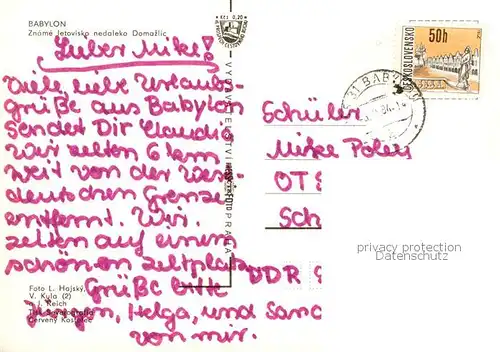 BABYLON
Známé letovisko nedaleko Domažlic
Kčs 0,20
Lieber Mike!
Viele liebe Urlaubs-
grüße aus Babylon
sendet Dir Claudia
Wir zelten 6 km
weit von der Wes-
deutschen Grenze
entfernt. Wir
zelten auf einem
schönen Zeltplatz
Grüße bitte
Jürgen, Helga, und Sand
von mir.
Foto L. Hajský,
V. Kyla (2)
a J. Reich
Tisk Severografia
Červený Kostelec
VYDAVATELSTVÍ
FOTO PRAHA
50h
ČESKOSLOVENSKO
BABYLON
Schüler
Mike Poley
OTS
Sch
DDR 9
privacy protection
Datenschutz